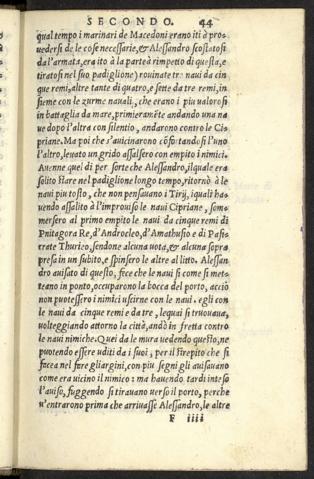 SECONDO. 44
qual tempo i marinari de Macedoni erano iti è pro-
uedersi de le cose necessarie, & Alessandro scostatosi
da l'armata, era ito à la parte à rimpetto di questa, e
tiratosi nel suo padiglione) rouinate tre naui da cin
que remi, altre tante di quatro, e sette da tre remi, in
sieme con le zurme nauali, che erano i piu ualorosi
in battaglia da mare, primieramẽte andando una na
ue dopo l'altra con silentio, andarono contro le Ci-
priane. Ma poi che s'auicinarono cõfortandosi l'uno
l'altro, leuato un grido assalsero con empito i nimici.
Auenne quel dì per sorte che Alessandro, ilquale era
solito stare nel padiglione longo tempo, ritornò à le
naui piu tosto, che non pensauano i Tirij, iquali ha-
uendo assalito à l'improuiso le naui Cipriane, som-
mersero al primo empito le naui da cinque remi di
Pnitagora Re, d'Androcleo, d'Amathusio e di Pasi-
crate Thurieo, sendone alcuna uota, & alcuna sopra
presa in un subito, e spinsero le altre al litto. Alessan-
dro auisato di questo, fece che le naui si come si met-
teano in ponto, occuparono la bocca del porto, acciò
non puotessero i nimici uscirne con le naui. egli con
le naui da cinque remi e da tre, lequai si truouaua,
uolteggiando attorno la città, andò in fretta contro
le naui nimiche. Quei da le mura uedendo questo, ne
puotendo essere uditi da i suoi, per il strepito che si
facea nel fare gli argini, con piu segni gli auisauano
come era uicino il nimico: ma hauendo tardi inteso
l'auiso, fuggendo si tirauano uerso il porto, perche
u'entrarono prima che arriuasse Alessandro, le altre
F iiii